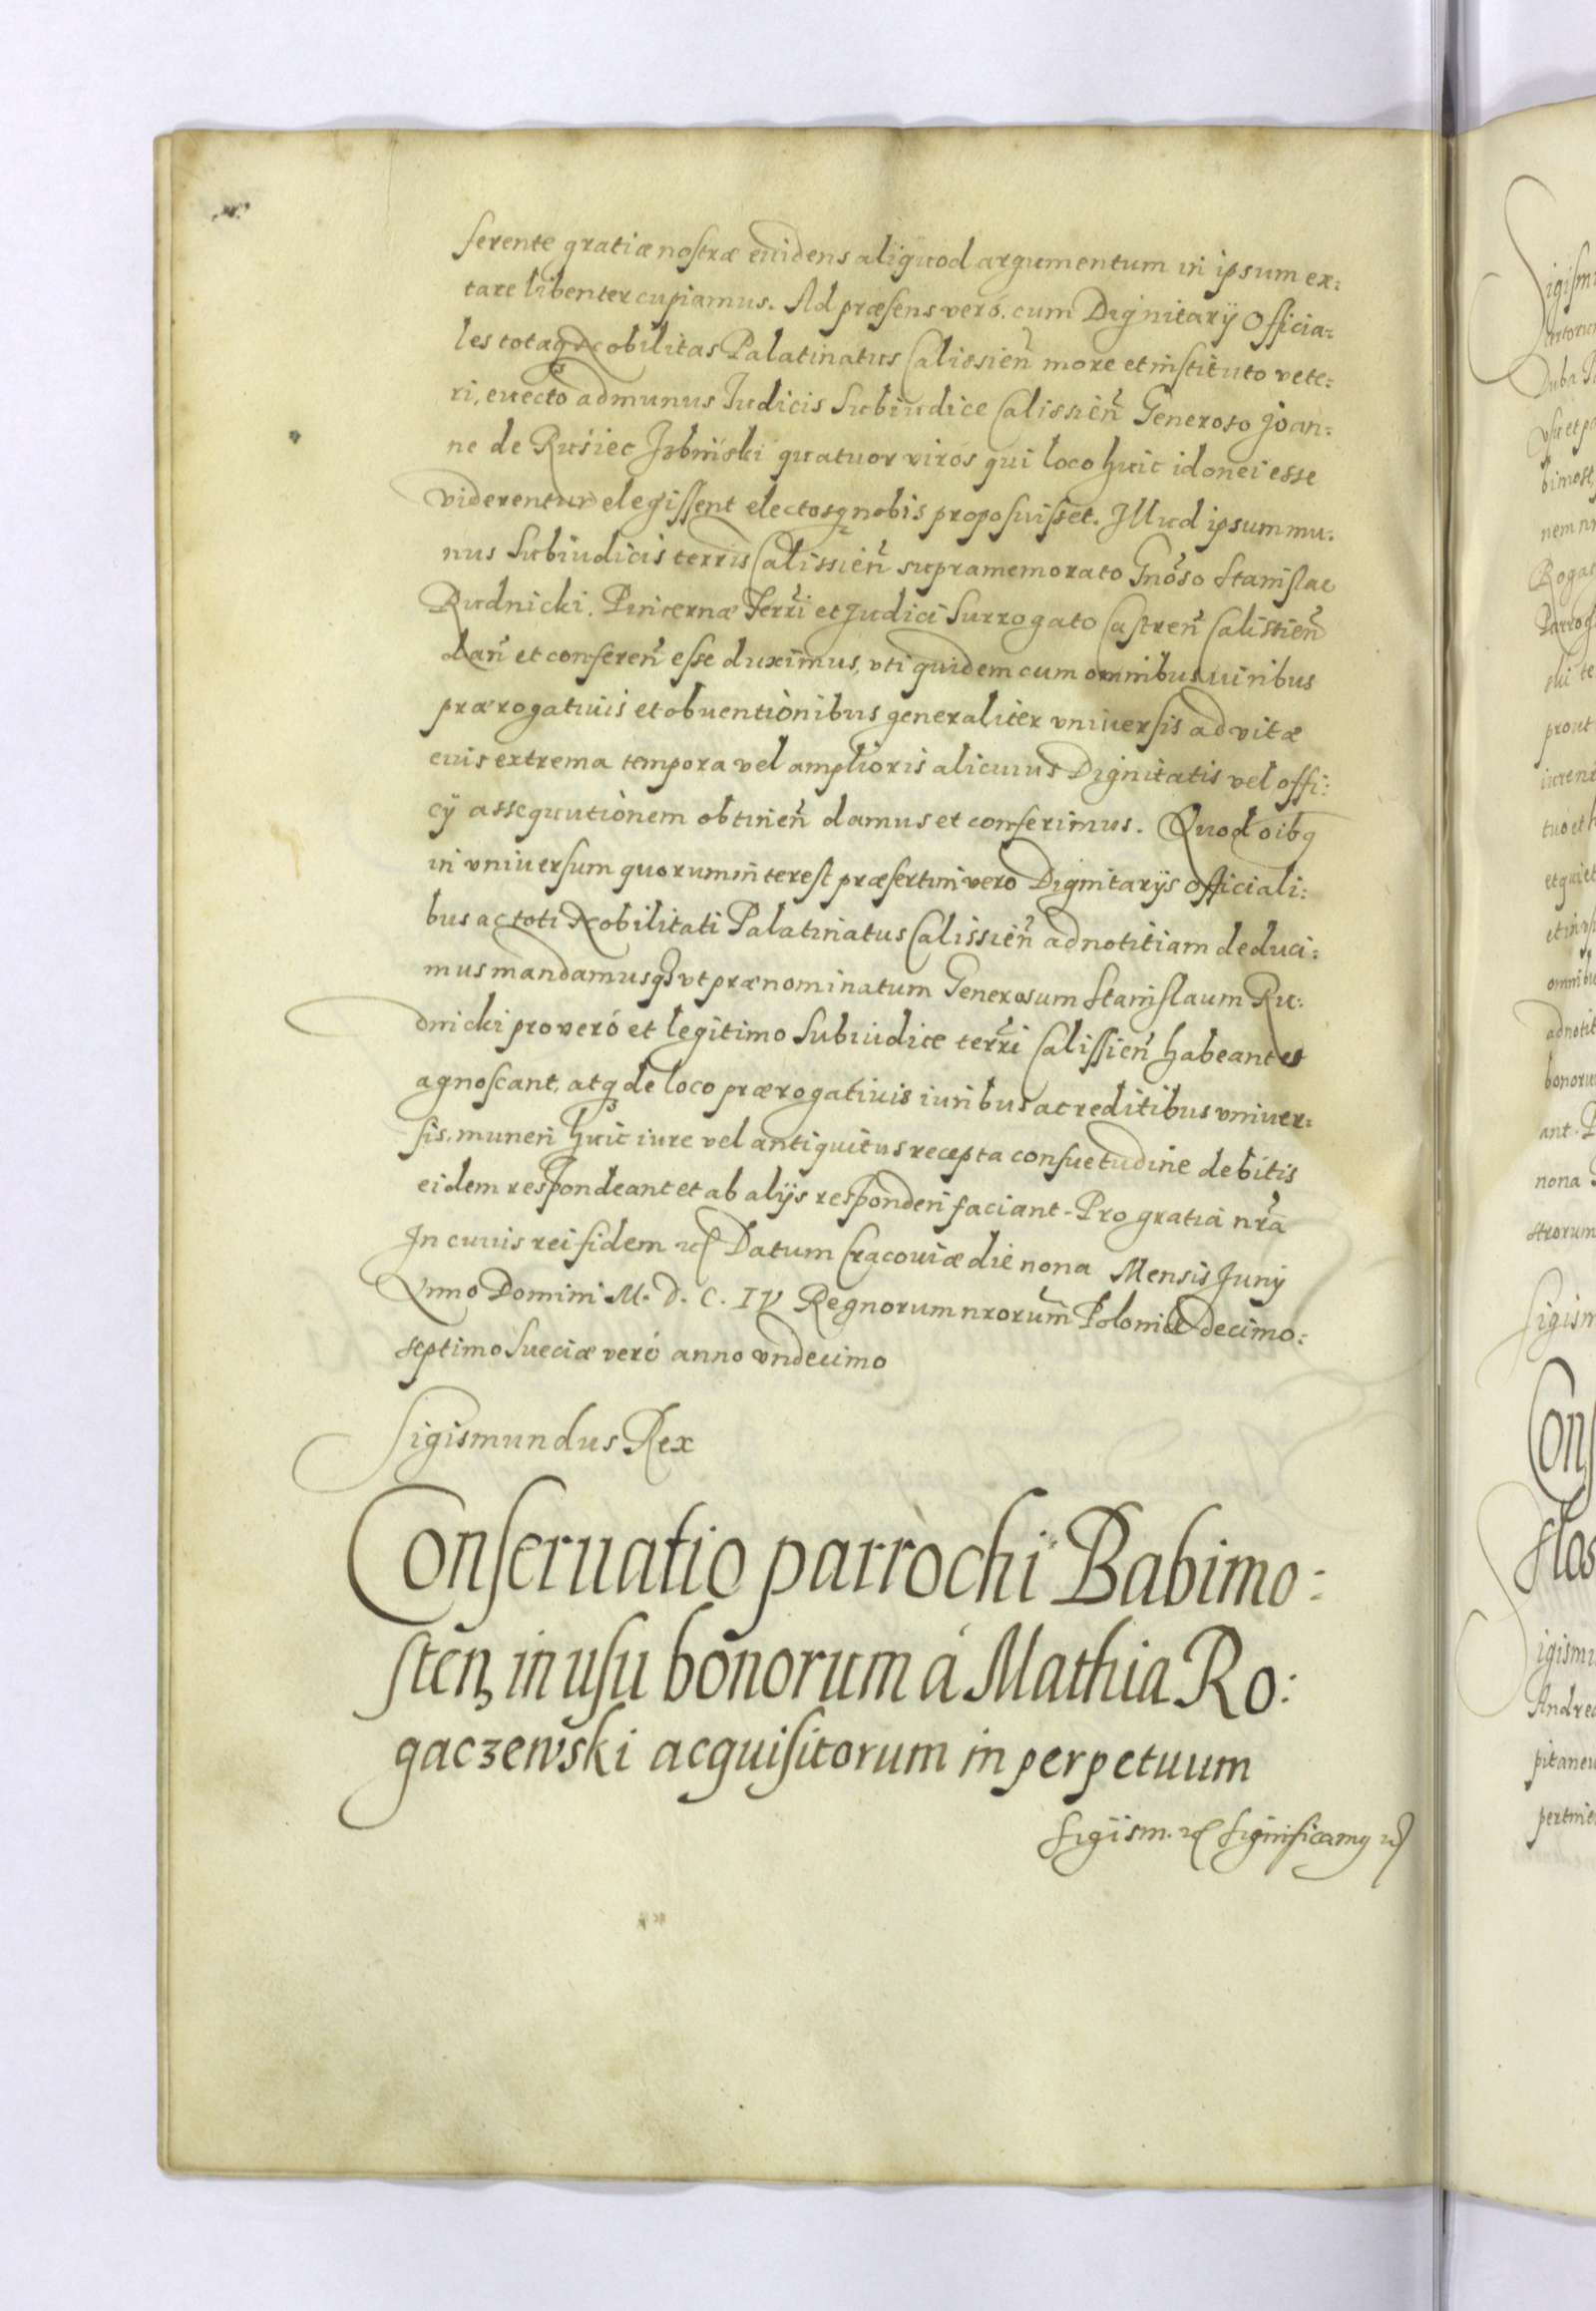 ferente gratiæ nostræ euidens aliquod argumentum in ipsum ex:
tare libenter cupiamus. Ad præsens veró. cum Dignitarÿ Officia:
les totaq3 Nobilitas Palatinatus Calissień more et instituto vete:
ri, euecto ad munus Iudicis Subiudice Calissień Generoso Joan:
ne de Rusiec Jzbinski quatuor viros qui loco huic idonei esse
viderentur elegissent electosq3 nobis proposuisset. Illud ipsum mu:
nus Subiudicis terris Calissień supramemorato Gnõso Stanislao
Rudnicki. Pincernæ Terri et Judici Surrogato Castreń Calissień
dań et confereń esse duximus, vti quidem cum omnibus iuribus
prærogatiuis et obuentionibus generaliter vniuersis ad vitæ
euis extrema tempora vel amplioris alicuius Dignitatis vel offi:
cÿ assequutionem obtineń damus et conferimus. Quod oibq
in vniuersum quorum interest præsertim vero Dignitarÿs Officiali:
bus ac toti Nobilitati Palatinatus Calissień ad notitiam deduci:
mus mandamusq3 vt prænominatum Generosum Stanislaum Ru:
dnicki pro veró et legitimo Subiudice terri Calissień habeant et
agnoscant, atq3 de loco prærogatiuis iuribus ac reditibus vniuer:
sis, muneri huic iure vel antiquitus recepta consuetudine debitis
eidem respondeant et ab alÿs responderi faciant. Pro gratia nr̃a
In cuius rei fidem etc Datum Cracouiæ die nona Mensis Junÿ
Anno Domini M. D. C. IV Regnorum nrorum Poloniæ decimo:
septimo Sueciæ veró anno vndecimo
Sigismundus Rex
Conseruatio parrochi Babimo:
steń in usu bonorum á Mathia Ro:
gaczewski acquisitorum in perpetuum
Sigism. etc Significamq etc